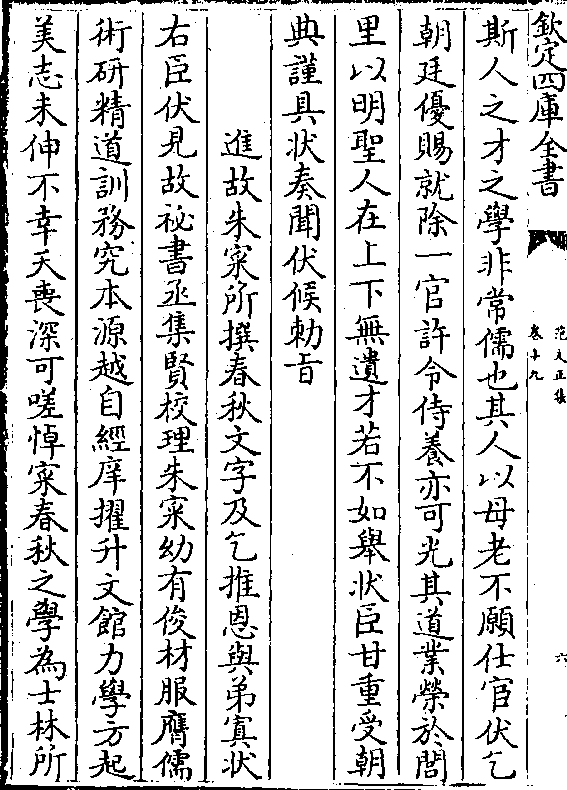 欽定四庫全書
范文正集
卷十九
六
斯人之才之學非常儒也其人以母老不願仕官伏乞
朝廷優賜就除一官許令侍養亦可光其道業榮於閭
里以明聖人在上下無遺才若不如舉狀臣甘重受朝
典謹具狀奏聞伏候勅旨
進故朱寀所撰春秋文字及乞推恩與弟寘狀
右臣伏見故祕書丞集賢校理朱寀幼有俊材服膺儒
術研精道訓務究本源越自經庠擢升文館力學方起
美志未伸不幸夭喪深可嗟悼寀春秋之學為士林所